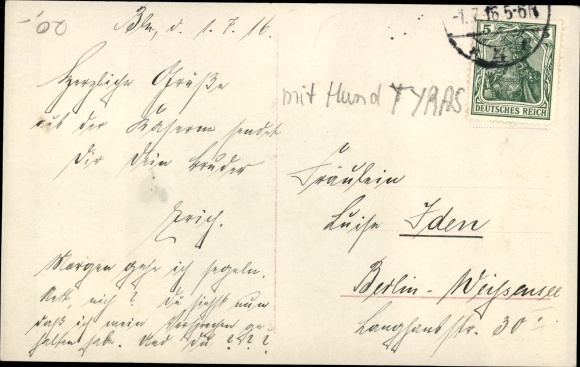 20,-
Bln, d. 1.7.16.
-1.7.16.5-6N
5
DEUTSCHES REICH
Herzliche Grüße
aus der Kaserne sendet
Dir Dein Bruder
Erich.
Morgen gehe ich segeln.
Nett, nich? Du siehst nun
daß ich mein Versprechen ge-
halten hab. Und Du ????
mit Hund TYRAS
Fräulein
Luise Iden
Berlin-Weißensee
Langhansstr. 30